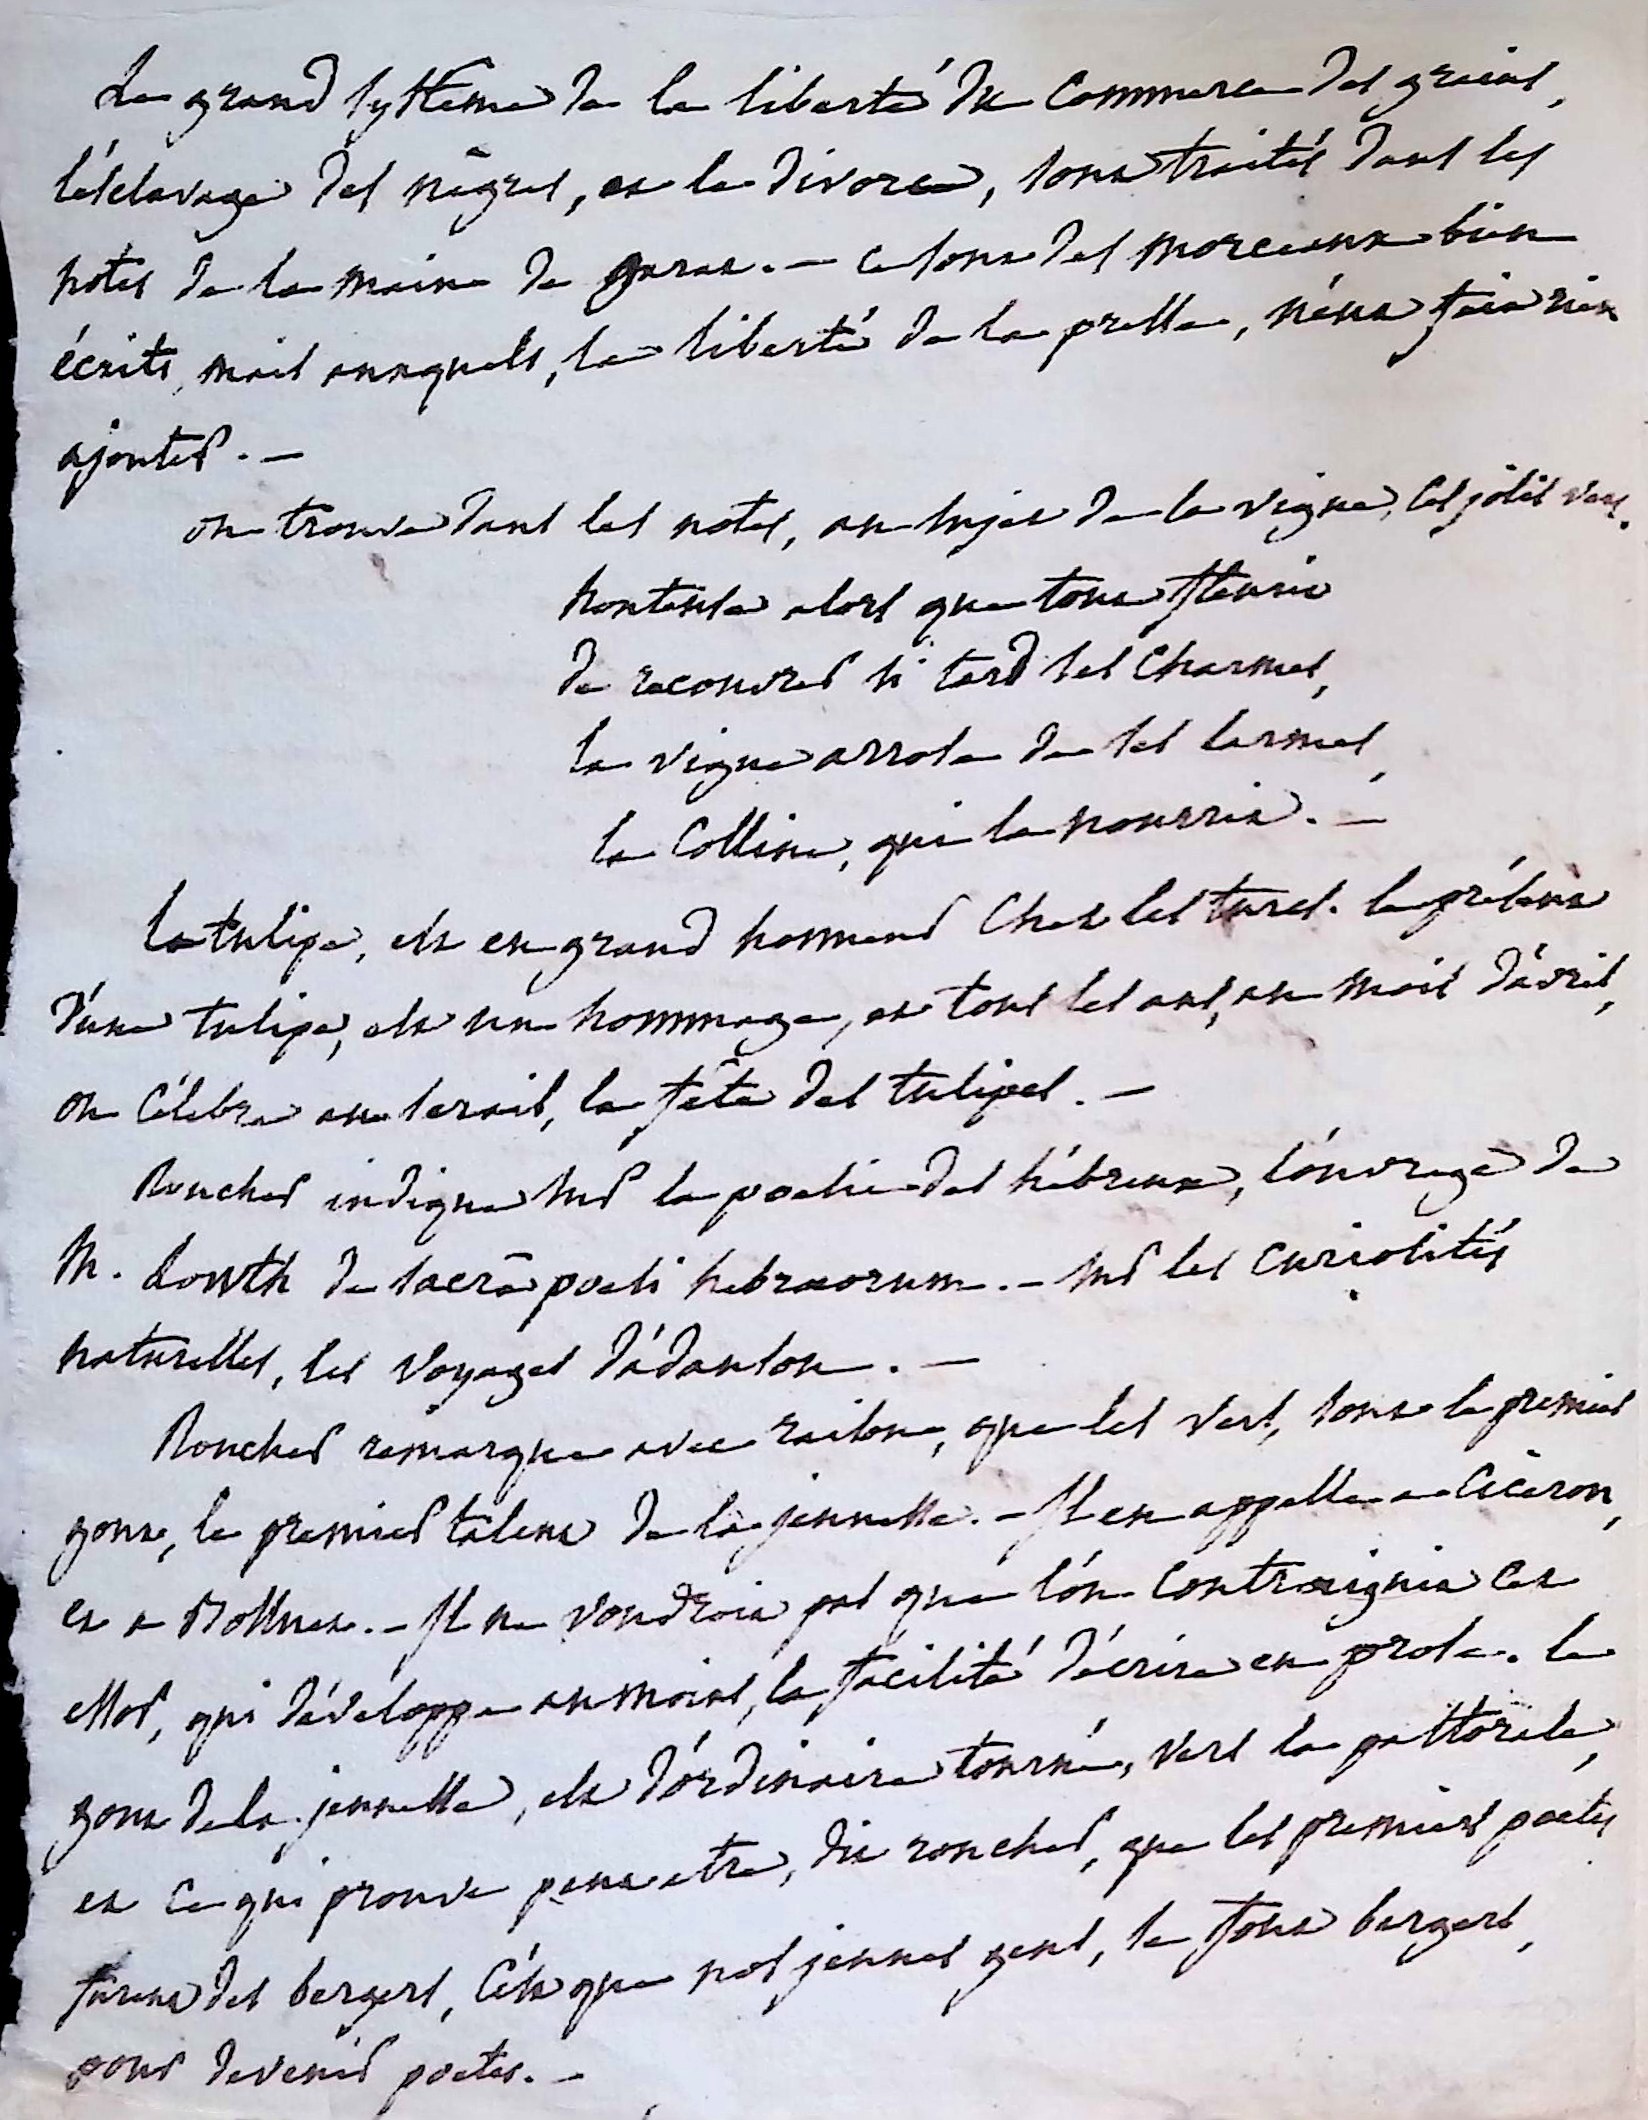 Le grand systême de la liberté du commerce des grains,
l'ésclavage des nêgres, et le divorce, sont traités dans les
notes de la main de garat. — ce sont des morceaux bien
écrits, mais auxquels, la liberté de la presse, n'eut fait rien
ajouter. —
on trouve dans les notes, au sujet de la vigne, ces jolis vers.
honteuse alors que tout fleurit
de recouvrer si tard ses charmes,
la vigne arrose de ses larmes,
la colline, qui la nourrit. —
la tulipe, est en grand honneur chez les turcs. le présent
d'une tulipe, est un hommage, et tous les ans, au mois d'avril,
on célebre au serail, la fête des tulipes. —
Roucher indique sur la poesie des hébreux, l'ouvrage de
M. Lowth de sacrâ poesi hebraeorum. — sur les curiosités
naturelles, les voyages d'adanson. —
Roucher remarque avec raison, que les vers, sont le premier
gout, le premier talent de la jeunesse. — Il en appelle a Cicéron,
et a Bossuet. — Il ne voudroit pas que l'on contraignit cet
essor, qui dévéloppe au moins, la facilité d'écrire en prose. le
gout de la jeunesse, est d'ordinaire tourné, vers la pastorale,
et ce qui prouve peut etre, dit roucher, que les premiers poetes
furent des bergers, c'est que nos jeunes gens, se font bergers,
pour devenir poetes. —